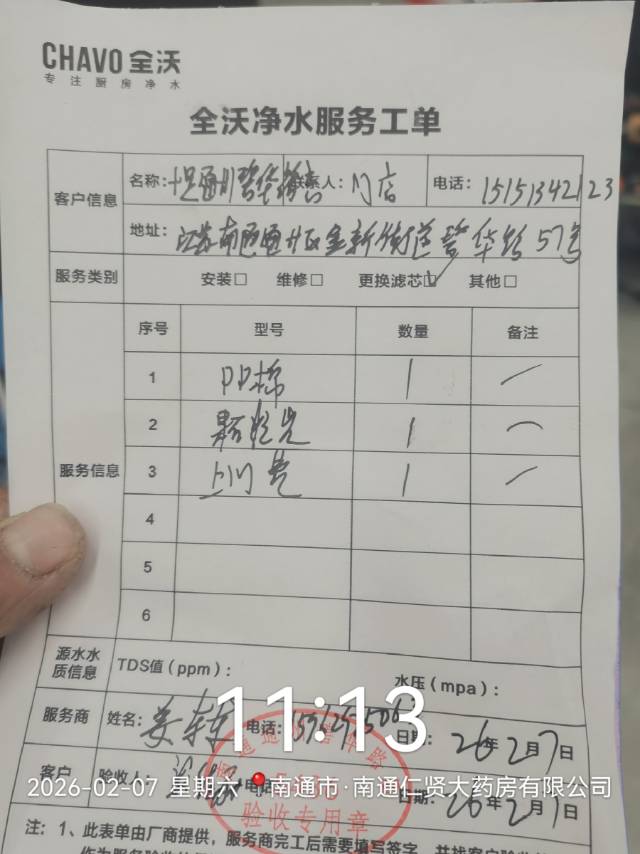 CHAVO 全沃
专注厨房净水
全沃净水服务工单
客户信息
名称: 联系人: 门店 电话: 15151342123
地址: 江苏南通通州区金新街道 华路57号
服务类别 安装□ 维修□ 更换滤芯☑ 其他□
服务信息
序号 型号 数量 备注
1 PP棉 1 /
2 颗粒炭 1 /
3 上门费 1 /
4
5
6
源水水质信息 TDS值(ppm): 水压(mpa):
11:13
服务商 姓名: 姜 电话: 日期: 26年2月7日
客户 验收人: 电 日期: 26年2月7日
验收专用章
2026-02-07 星期六 南通市·南通仁贤大药房有限公司
注: 1、此表单由厂商提供,服务商完工后需要填写签字,并找客户验收